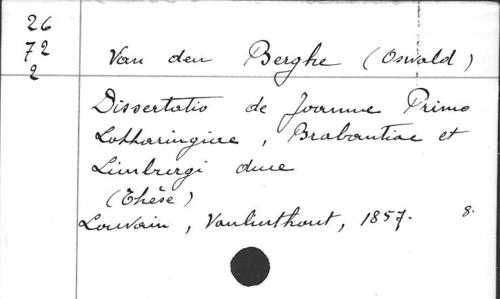 26
72
2
Van den Berghe (Oswald)
Dissertatio de Joanne Primo
Lotharingiae, Brabantiae et
Limburgi duce
(Thèse)
Louvain, Vanlinthout, 1857. 8.